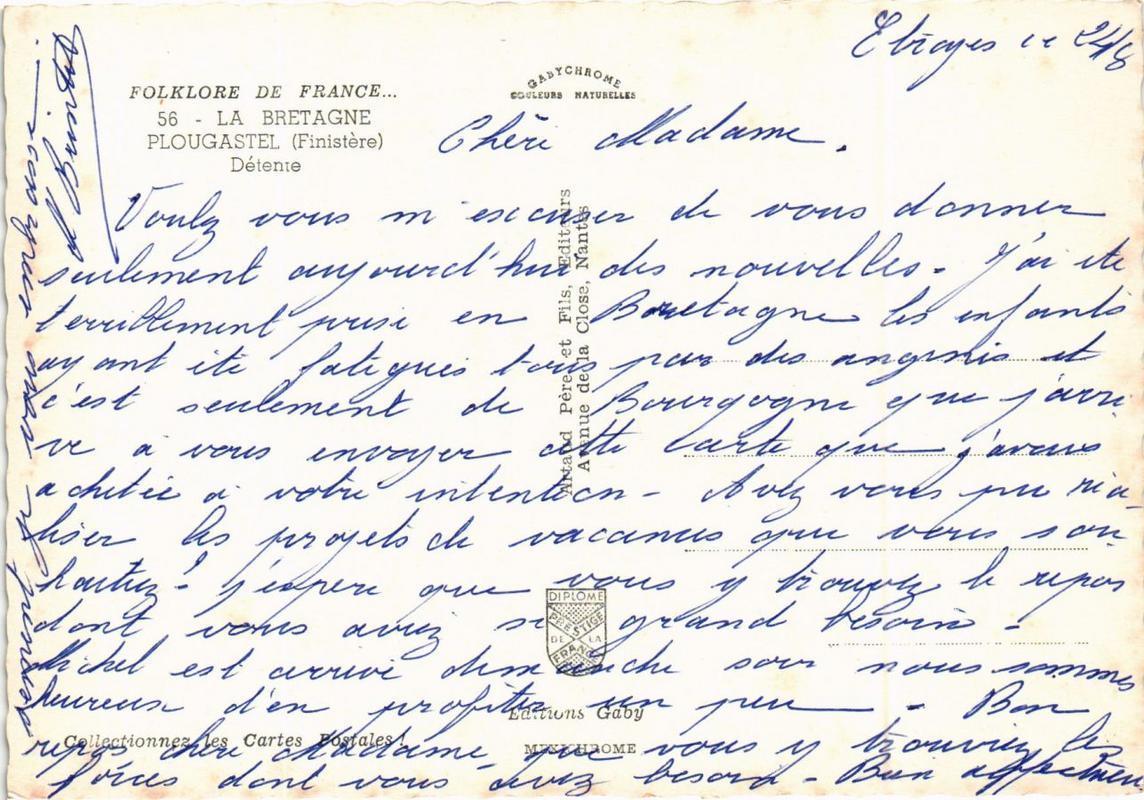 le 24/8
FOLKLORE DE FRANCE...
56 - LA BRETAGNE
PLOUGASTEL (Finistère)
Détente
GABYCHROME
COULEURS NATURELLES
Chère Madame,
Voulez vous m'excuser de vous donner
seulement aujourd'hui des nouvelles - J'ai été
terriblement prise en Bretagne les enfants
ayant été fatigués tous par des angines et
c'est seulement de Bourgogne que j'arri-
ve à vous envoyer cette carte que j'avais
achetée à votre intention - Avez vous pu réa-
liser les projets de vacances que vous sou-
haitiez? J'espère que vous y trouvez le repos
dont vous avez si grand besoin -
Michel est arrivé dimanche soir nous sommes
heureux d'en profiter un peu - Bon
repos chère Madame, que vous y trouviez les
forces dont vous avez besoin - Bien affectueu
sement je vous embrasse -
Artaud Père et Fils, Editeurs
Avenue de la Close, Nantes
DIPLOME
PRESTIGE
DE LA
FRANCE
Editions Gaby
Collectionnez les Cartes Postales!
MEXICHROME